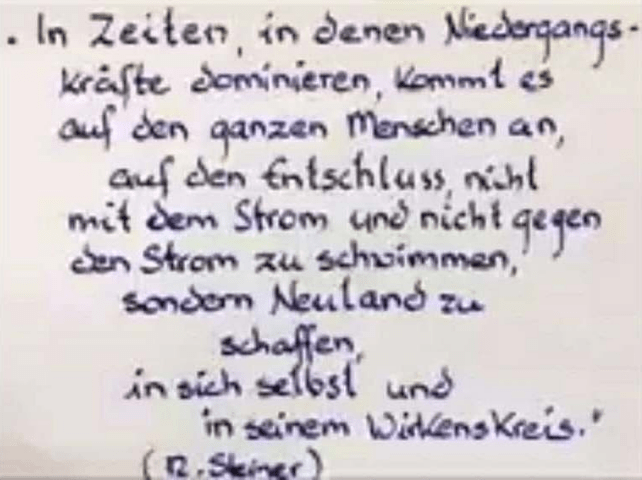 . In Zeiten, in denen Niedergangs-
kräfte dominieren, kommt es
auf den ganzen Menschen an,
auf den Entschluss, nicht
mit dem Strom und nicht gegen
den Strom zu schwimmen,
sondern Neuland zu
schaffen,
in sich selbst und
in seinem Wirkenskreis."
(R. Steiner)